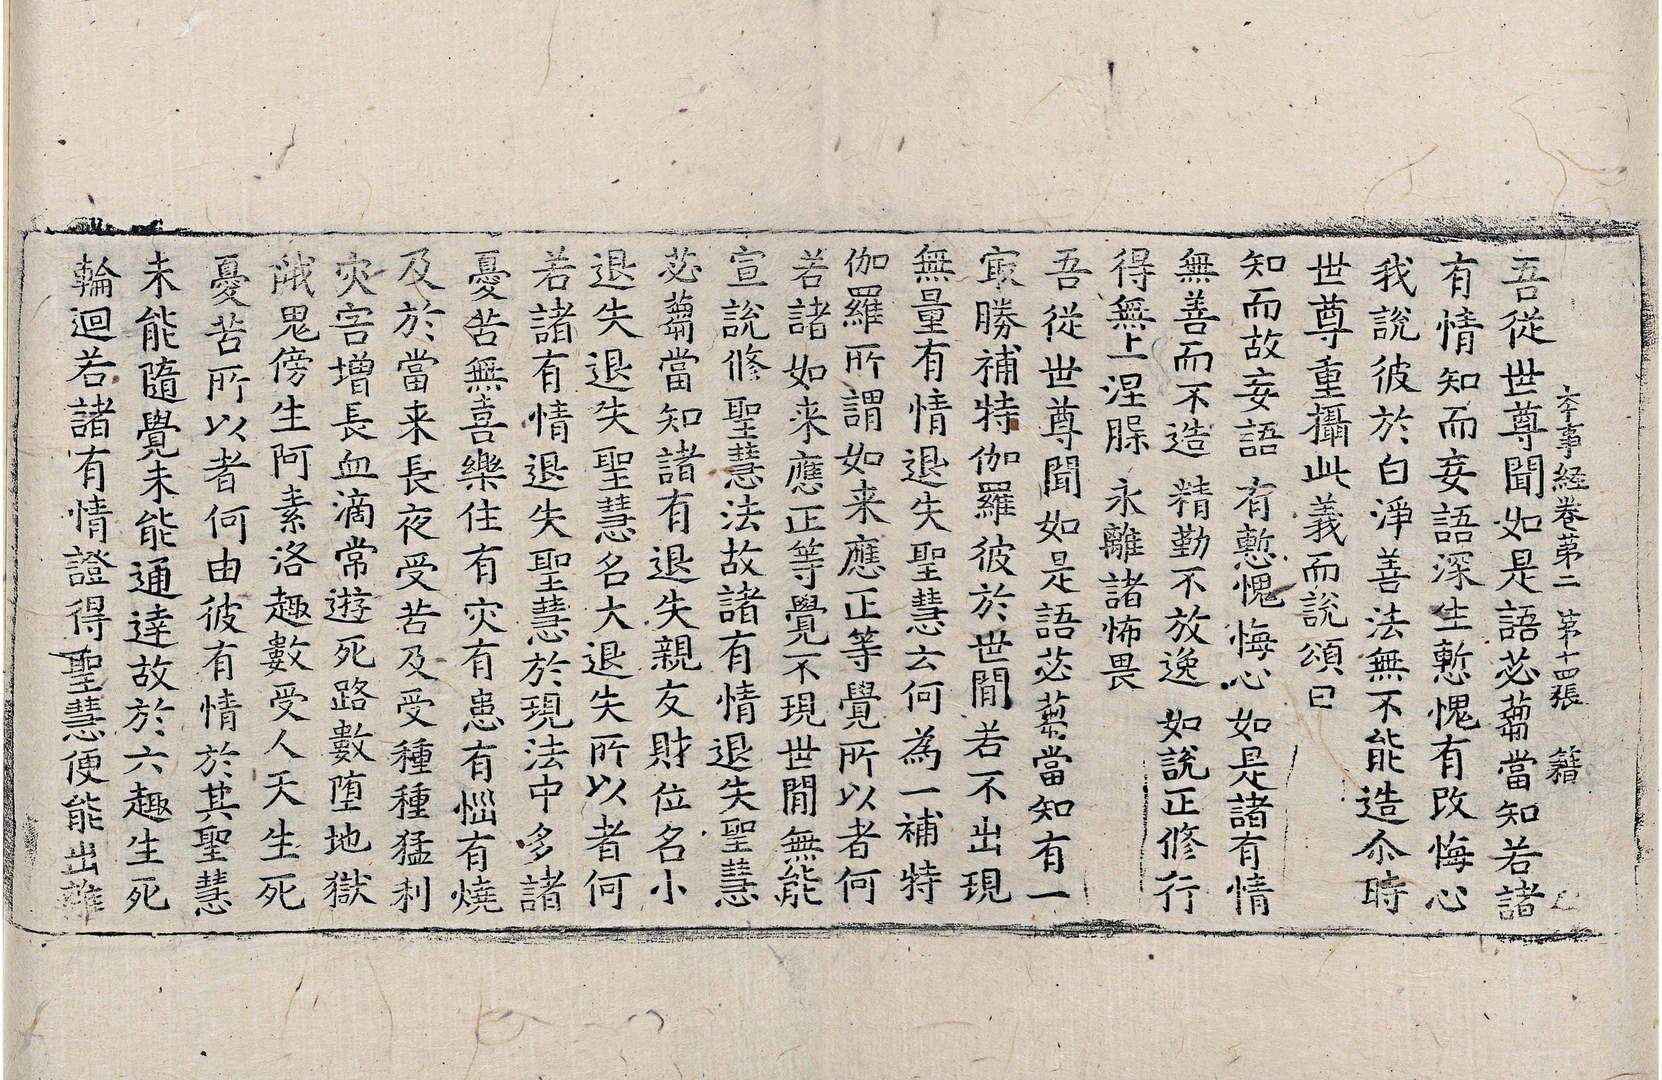 本事経卷苐二 苐十四張 籍
吾從世尊聞如是語苾蒭當知若諸
有情知而妄語深生慙愧有改悔心
我說彼於白淨善法無不能造尒時
世尊重攝此義而說頌曰
知而故妄語 有慙愧悔心 如是諸有情
無善而不造 精勤不放逸 如說正修行
得無上涅槃 永離諸怖畏
吾從世尊聞如是語苾蒭當知有一
㝡勝補特伽羅彼於世間若不出現
無量有情退失聖慧云何為一補特
伽羅所謂如来應正等覺所以者何
若諸如来應正等覺不現世間無能
宣說修聖慧法故諸有情退失聖慧
苾蒭當知諸有退失親友財位名小
退失退失聖慧名大退失所以者何
若諸有情退失聖慧於現法中多諸
憂苦無喜樂住有灾有患有惱有燒
及於當来長夜受苦及受種種猛利
灾害增長血滴常遊死路數墮地獄
餓鬼傍生阿素洛趣數受人天生死
憂苦所以者何由彼有情於其聖慧
未能隨覺未能通達故於六趣生死
輪迴若諸有情證得聖慧便能出離